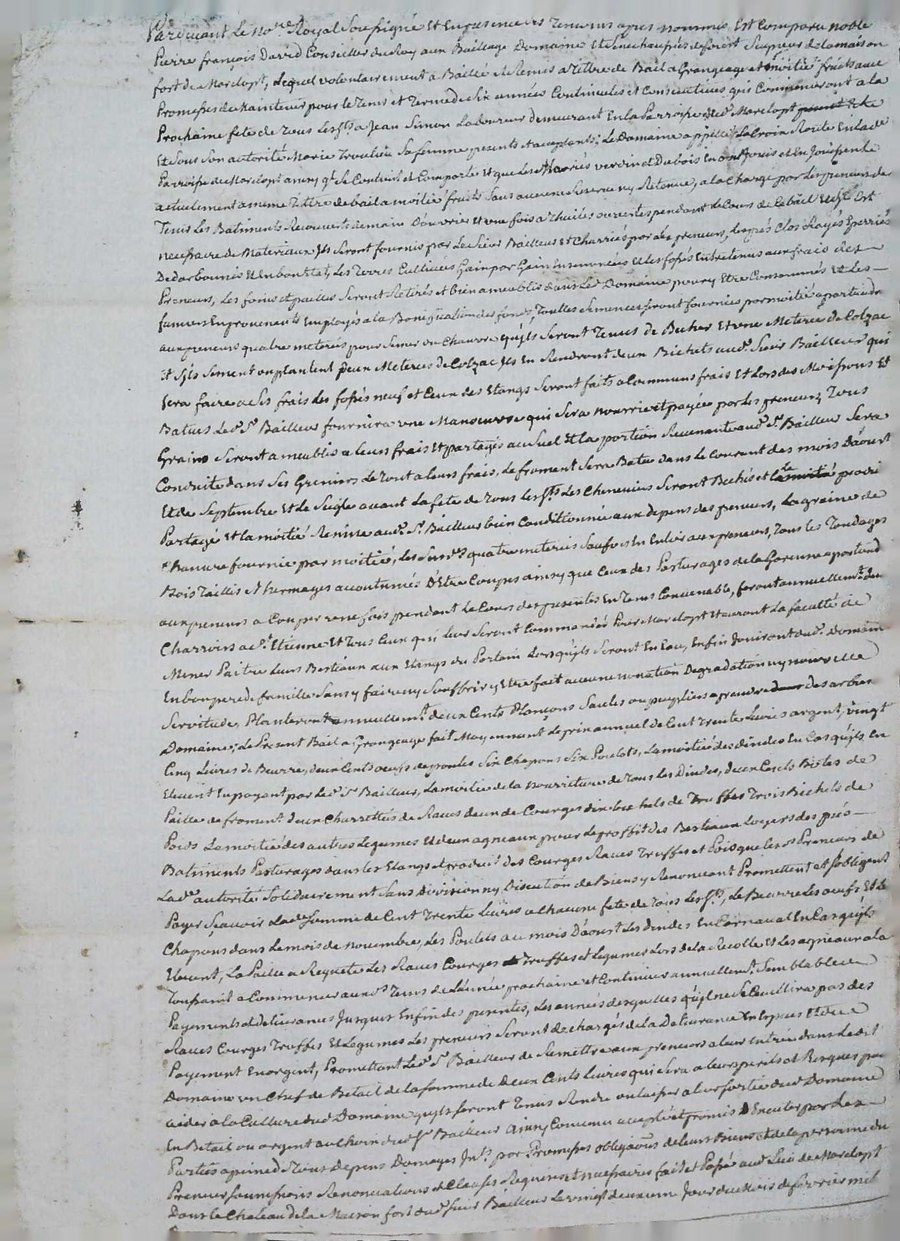 Pardevant Le no.re Royal Soussigné Et En presence des Temoins apres nommés, Est Comparu noble
Pierre françois David Conseiller du Roy aux Bailliage Domaine Et Senechaussée de forest Seigneur de la maison
fort de Marclopt, Lequel volontairement a Baillé et Remis a titre de Bail a Grangeage et moitié fruits avec
Promesses de maintenir pour le tems et terme de Six années Continuelles et Consecutives qui Commenceront a la
Prochaine fete de Tous Les S.ts a Jean Simon Laboureur demeurant En la Parroisse de Marclopt
Et Sous Son autorité Marie Sa femme presents et acceptants, Le Domaine appellé Lacroix En lad.e
Parroisse de Marclopt ainsy q.l Se Contient et Comporte Et que Les Mariés verdier et Dubois En ont Jouis et En Jouissent
actuellement a meme titre de bail a moitié fruits Sans aucune Reserve ny Retenue, a la Charge par Les preneurs de
Tenir Les Batiments Recouverts de main D'ouvrier Et une fois a Chailes ouvertes pendant le Cours de Ce bail Et S'il Est
necessaire de Materiaux Ils Seront fournis par Le Sieur Bailleur Et Charriés par Les preneurs, Les prés Clos
Et En bon Etat, Les Terres Cultivées Gain par Gain Ensemencées Et les fossés Entretenus aux frais des
Preneurs, Les foins et pailles Seront Retirés et bien ameublis dans Le Domaine pour y Etre Consommés Et Les
fumiers En provenants Employés a la Bonification des fonds, Touttes Semences Seront fournies par moitié
aux preneurs quatre meteries pour Semer du Chanvre qu'ils Seront Tenus de Becher Et une Meterée de Colzac
Et S'ils Sement ou plantent Meteries de Colzac Ils En Rendront deux Bichets aud. Sieur Bailleur qui
fera faire a Ses frais Les fossés neufs et Ceux des Etangs Seront faits a Communs frais Et Lors des Moissons Et
Batues Led. S.r Bailleur fournira une Manoeuvre qui Sera nourrie et payée par Les preneurs, Tous
Grains Seront ameublis a leurs frais Et partagés au Sol Et la portion Revenante aud. S.r Bailleur Sera
Conduite dans Ses Greniers Le Tout a leurs frais, Le froment Sera Batu dans le Courant des mois D'aoust
Et de Septembre Et Le Seigle avant La fete de Tous Les S.ts Les Chenevieres Seront Bechés et la moitié
Partagé Et la moitié Remise aud. S.r Bailleur bien Conditionnée aux depens des preneurs, La graine de
Chanvre fournie par moitié, Les quatre meteries En Entier aux preneurs, Tous les Tondages
Bois Taillis Et accoutumés D'Etre Coupés ainsy que Ceux des Pasturages de la Garenne
aux preneurs a Couper une fois pendant le Cours des presentes En Tems Convenable, feront annuellem.t
Charrois a S.t Etienne Et Tous Ceux qui leur Seront Commandés Pour Marclopt Et auront La faculté de
Mener Paitre Leurs Bestiaux aux Etangs du Lorsqu'ils Seront En Eau, Enfin Jouiront dud. Domaine
En bon pere de famille Sans y faire ny Souffrir y Etre fait aucune Degradation ny nouvelle
Servitude, Planteront annuellem.t deux Cents Plançons Saules ou peupliers a prendre des arbres
Domaine; Le Present Bail a Grangeage fait Moyennant Le prix annuel de Cent Trente Livres argent, vingt
Cinq Livres de Beurre, deux Cents oeufs de poules Six Chapons Six Poulets, La moitié des dindes En Cas qu'ils En
Elevent En payant par Led. S.r Bailleur, La moitié de la nourriture de Tous Les Dindes, deux Cents Bottes de
Paille de froment deux Charrettées de Raves deux de Courges dix bichets de Truffes Trois Bichets de
Pois Le moitié des autres Legumes Et deux agneaux pour Le proffit des Bestiaux Loyers des
Batiments Pasturages dans les Etangs et produit des Courges Raves Truffes et Pois que les d. Preneurs de
Lad.e autorité Solidairement Sans division ny Discution de Biens y Renoncant Promettent et S'obligent
Payer Scavoir Lad.e Somme de Cent Trente Livres a Chacune fete de Tous Les S.ts, Le Beurre Les oeufs Et Les
Chapons dans Le mois de novembre, Les Poulets au mois D'aoust Les Dindes En Carnaval En Cas qu'ils
Elevent, La Paille a Requete Les Raves Courges Truffes et Legumes Lors de la Recolte Et Les agneaux a la
Toussaint a Commencer auxd. Tems de L'année prochaine et Continuer annuellem.t Semblables
Payements et delivrances Jusques En fin des presentes, Les années desquelles qu'il ne Se Cueillira pas des
Raves Courges Truffes Et Legumes Les preneurs Seront dechargés de la Delivrance En Especes
Payement En argent, Promettant Led. S.r Bailleur de Remettre aux preneurs a leur Entrée dans Ledit
Domaine un Chef de Betail de la Somme de deux Cents Livres qui Sera a leurs perils et Risques pour
aider a la Culture dud. Domaine qu'ils Seront Tenus Rendre ou laisser a leur Sortie dud. Domaine
En Betail ou argent au Choix dud. S.r Bailleur Ainsy Convenu accepté et promis Executer par Les
Parties a peine de Tous depens Domages Int.ts par Promesses obligations de leurs Biens Et de la personne du
Preneur Soumissions Renonciations et Clauses Requises et necessaires fait et Passé aud. Lieu de Marclopt
Dans le Chateau de la Maison fort dud. Sieur Bailleur Le vingt deuxieme Jour du Mois de fevrier mil